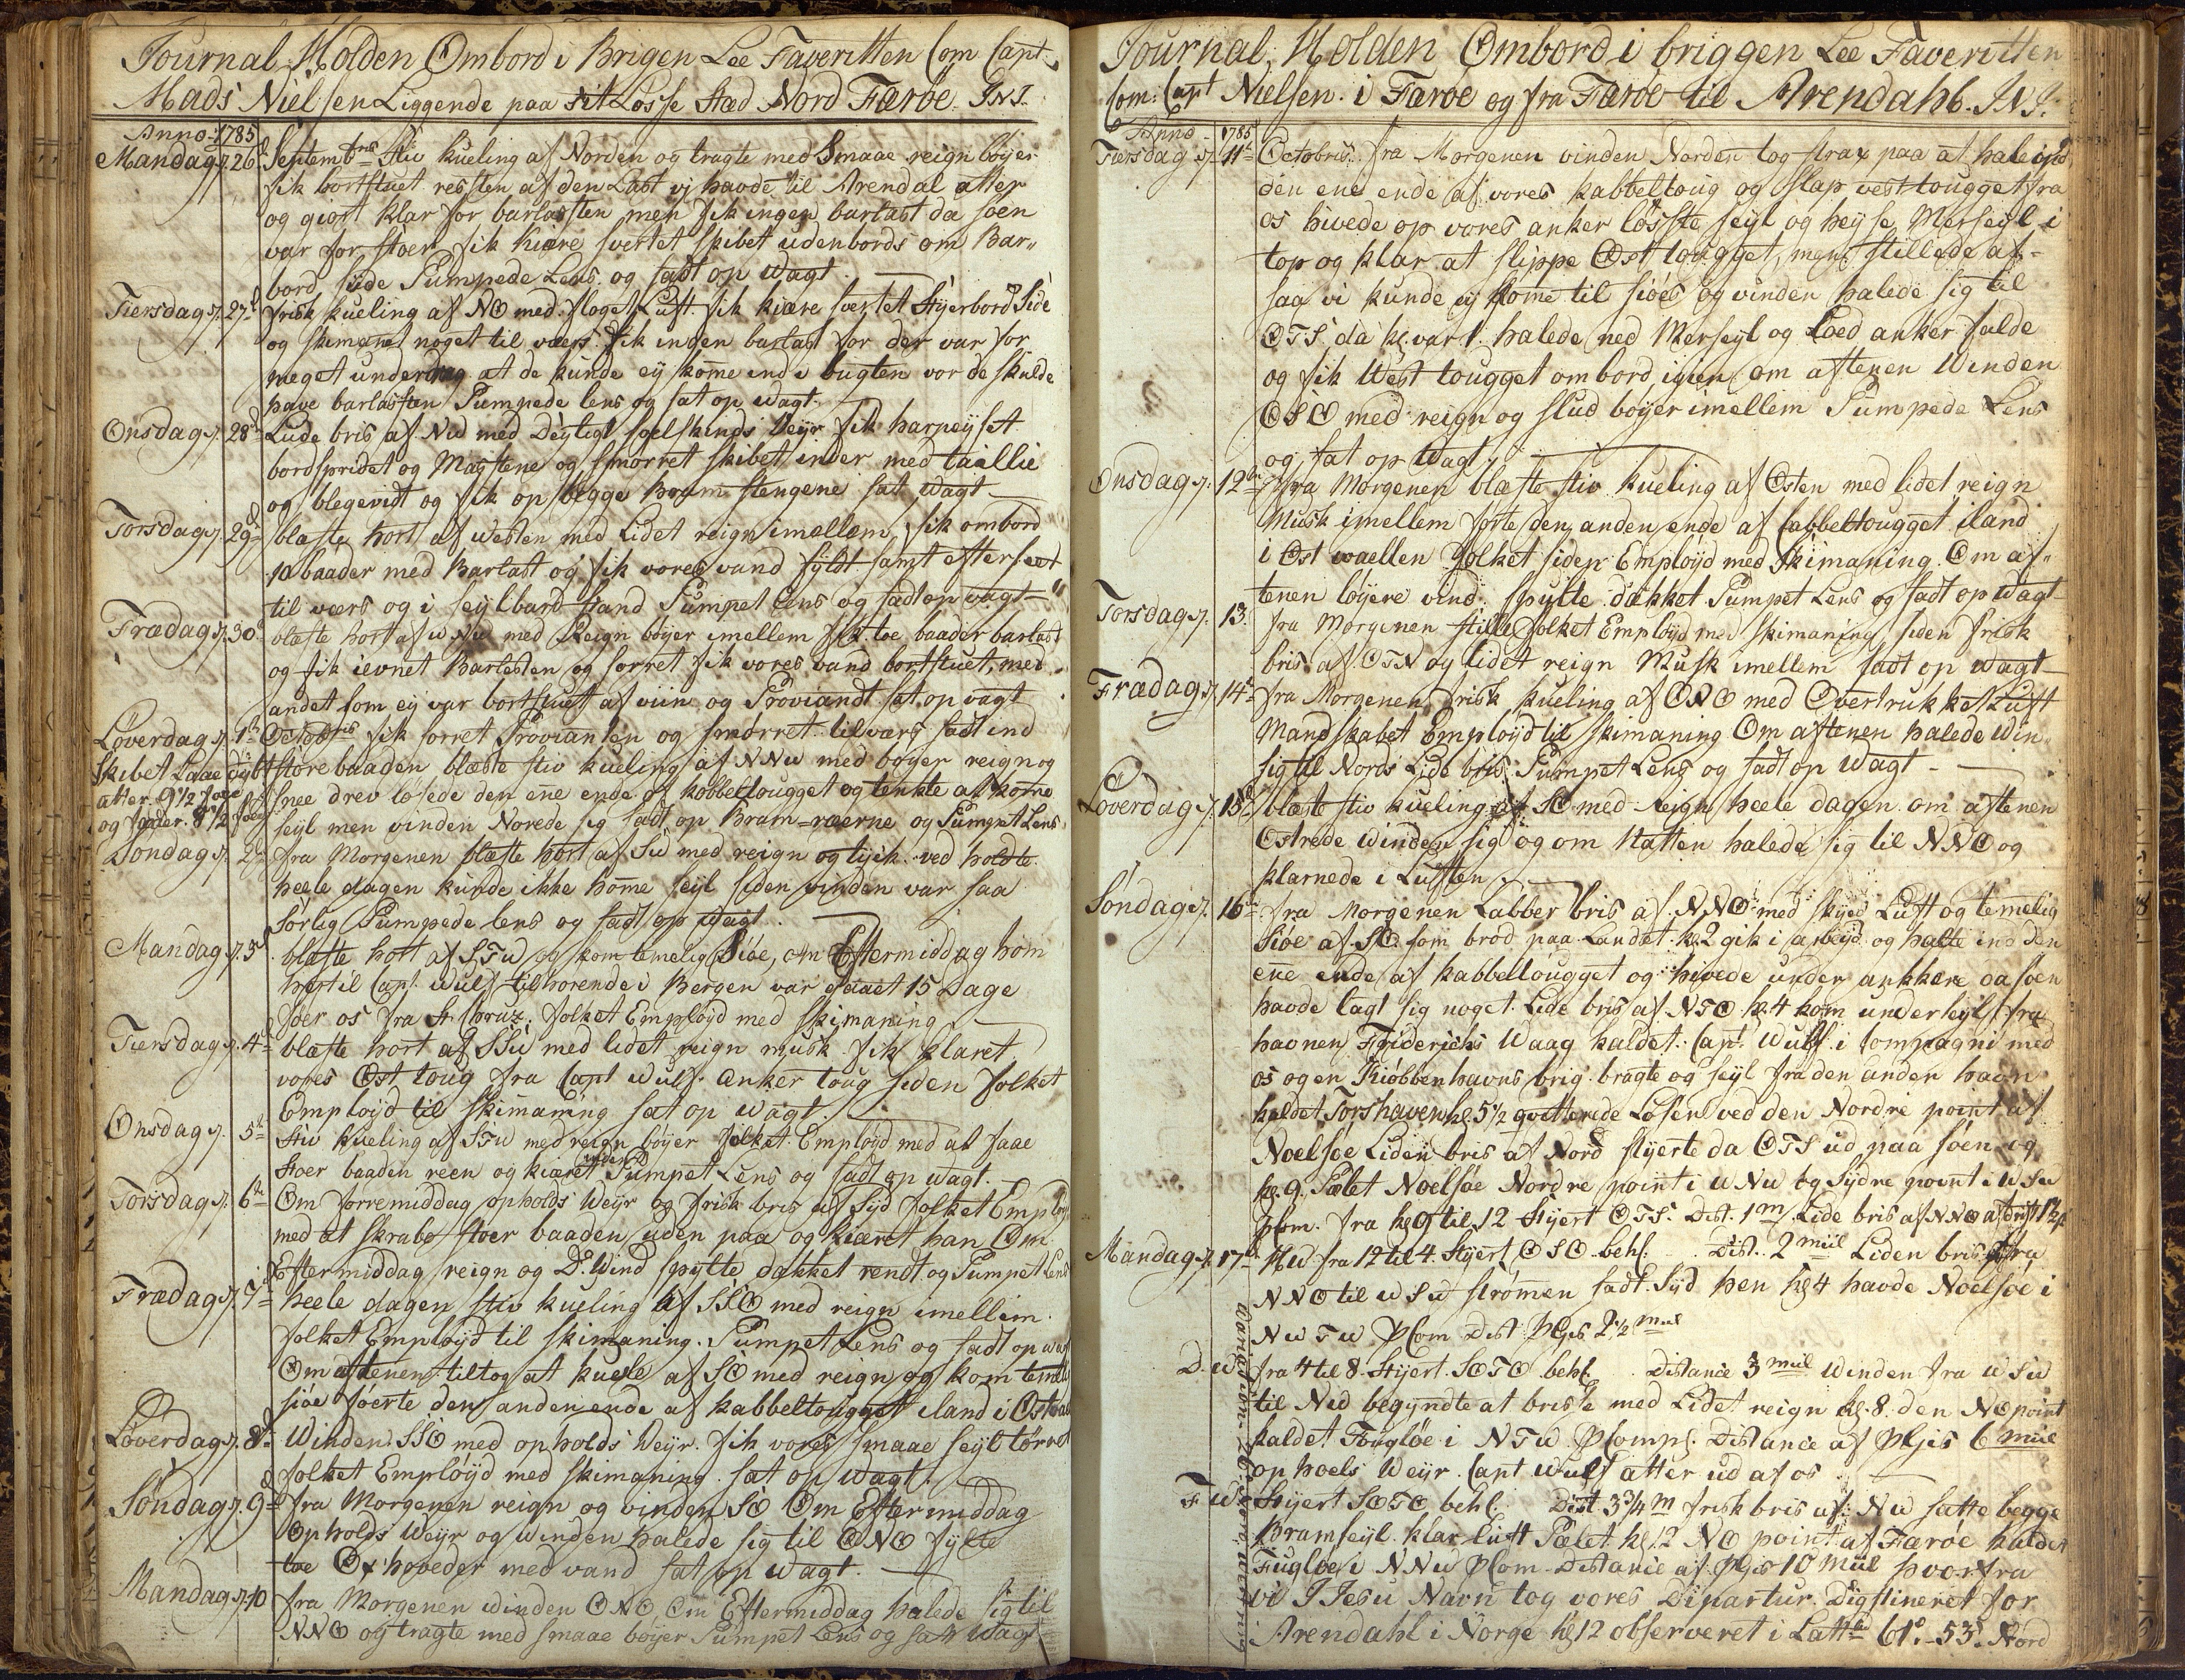 Journal Holden Ombord i Brigen Lee Faveritten Com Capt:
Mads Nielsen Liggende paa sit Losse stæd Nord Færöe. J.N.J.
Anno 1785
Mandag d. 26d Septembris Stiv kueling af Norden og tragte med Smaae reign böyer
fik bortstuet resten af den Last vj havde til Arendal atter
og giort klar for barlasten, men fik ingen barlast da söen
var for stoer, fik kiöre svertet skibet udenbords om Bar-
bord side Pumpede Lens og sadt op Wagt.
Tiersdag d. 27d frisk kueling af NO med flaget Luft. fik kiöre svertet Styerbord Side
og skimanet noget til værs. fik ingen barlast for der var for
meget underdrag at de kunde ey kome ind i bugten vor de skulde
have barlasten Pumpede lens og sat op wagt.
Onsdag d. 28d Lude bris af NW med Deyligt soelskinds Veyr fik harpeyset
bordspridet og Mastene og smörret skibet inder med taallie
og blegevidt og fik op begge Bram stengene sat wagt
Torsdag d. 29d blaste hort af Westen med Lidet reign imellem, fik ombord
10 baader med Barlast og fik vores vand fyldt samt efterseet
til værs og i seylbard stand Pumpet lens og sadt op vagt
Frædag d. 30d blaste hort af WNW med Reign böyer imellem fik toe baader barlast
og fik ievnet Barlesten og sorret fik vores vand bortstuet, med
andet som ey var bortstuet af viin og Proviandt sat op vagt
Löverdag d. 1te Octobris fik sorret Provianten og smörret tilvärs sadt ind
Skibet Laae dybt störe baaden blæste stiv kueling af NNW med böyer reign og
atter 9 1/2 foed snee drev lösede den ene ende af kabbeltougget og tenkte at kome
og for 8 1/2 foed seyl men vinden Norede sig sadt op Bram=raerne og Pumpet Lens
Söndag d. 2d fra Morgenen blaste hort af SW med reign og tyck ved holdte
heele dagen kunde ikke home seyl siden vinden var saa
sörlig Pumpede lens og sadt op wagt.
Mandag d. 3d blaste hort af STW og kom temelig Siöe, om Eftermiddag kom
her til Capt. Wulf tilhorende i Bergen var gaaet 15 Dage
foer os fra St. Cruz. folket Employd med skimaning
Tiersdag d. 4d blaste hort af SSW med lidet reign musk fik klaret
vores Öst toug fra Capt Wulf. anker toug siden folket
Employd til skimaning sat op wagt.
Onsdag d. 5te Stiv kueling af STW med reign böyer folket Employd med at faae
stoer baaden reen og kiæret inden Pumpet Lens og sadt op wagt.
Torsdag d. 6te Om forremiddag opholds Weyr og frisk bris af Syd folket Employd
med at skrabe stoer baaden uden paa og kiæret han Om
Eftermiddag reign og Do. Wind spylte dækket rendt og Pumpet Lens
Frædag d. 7d heele dagen stiv kueling af SSO med reign imellim.
folket Employd til skimaning. Pumpet Lens og sadt op wagt
Om aftenen tiltog at kuele af SO med reign og kom temelig
siöe föerte den anden ende af kabbeltougget iland i Öst
Löverdag d. 8d Winden SSO med opholds Weyr. fik vores smaae seyl törret
folket Employd med skimaning. sat op wagt.
Söndag d. 9d fra Morgenen reign og vinden SO Om Eftermiddag
Opholds Weyr og winden halede sig til ONO fylte
toe Oxhoveder med vand sat op wagt.
Mandag d. 10 fra Morgenen winden ONO, Om Eftermiddag halede sig til
NNO og tragte med smaae böyer Pumpet Lens og satt wagt
Journal, Holden Ombord i briggen Lee Faveritten
Com: Capt Nielsen. i Færöe og fra Færöe til Arendahl. J.N.J.
Anno 1785
Tiersdag d. 11te Octobris. fra Morgenen vinden Norden tog strax paa at hale ind
den ene ende af vores kabbeltoug og slap vest tougget fra
os hivede op vores anker lösste seyl og heyse Merseyl i
top og klar at slippe Öst tougget, men stillede af-
saa vi kunde ej kome til siöes og vinden halede sig til
OTS da kl. var 1. halede ned Merseyl og Loed anker falde
og fik West tougget ombord igien om aftenen Winden
OSO med reign og slud böyer imellem Pumpede Lens
og sat op wagt.
Onsdag d. 12te fra Morgenen blæste stiv kueling af Östen med lidet reign
Musk imellem förte den anden ende af Cabbeltougget iland
i Öst waellen folket siden Employd med Skimaning. Om af-
tenen löyere vind. spylte dækket Pumpet Lens og sadt op wagt
Torsdag d. 13. fra Morgenen stille folket Employd med skimaning, siden frisk
bris af OTN og lidet reign Musk imellem sadt op wagt
Frædag d. 14te fra Morgenen frisk kueling af ONO med Overtrukket Luft
Mandskabet Employd til skimaning Om aftenen halede win
sig til Nords Lide bris Pumpet Lens og sadt op wagt
Löverdag d. 15d blaste stiv kueling af SO med reign heele dagen om aftenen
Östrede winden sig og om Natten halede sig til NNO og
klarnede i Luften
Söndag d. 16te fra Morgenen Labber bris af NNO med skyed Luft og temelig
Siöe af SO. som bröd paa Landet. kl. 2 gik i arbeyd og halte ind den
ene ende af kabbeltougget og hivede under ankkere da söen
havde lagt sig noget. Lide bris af NTO kl. 4 kom under seyl fra
havnen Friderichs Waag kaldet. Capt. Wulf i Compagni med
os og en Kiöbbenhavns brig. bragte og seyl fra den anden havn
kaldet Torshaven kl. 5 1/2 qvitterede Losen ved den Nordre point af
Noelsöe Liden bris af Nord styerte da OTS ud paa söen og
kl. 9. Pælet Noelsöe Nordre point i WNW og Sydre point i WSW
pCom. fra kl 9 til 12 Styert OTS. Dist. 1 m. Lide bris af NNO afdrift 1 1/2 p
Mandag d. 17de HW fra 12 til 4. Styert OSO behl: Dist. 2 miil Liden bris fra
NNO til WSW strömen sadt Syd hen kl 4 havde Noelsöe i
NWTW pCom Dist pGis 2 1/2 miil
D.W. fra 4 til 8. Styert SOTO behl. Distance 3 miil Winden fra WSW
til NW begyndte at briste med Lidet reign kl. 8. den NO point
kaldet Fuglöe i NTW pComps. Distance af pGis 6 miil
op hoels Weyr. Capt Wulf atter ud af os
F W. Styert SOTO behl. Dist 3 3/4 m frisk bris af NW satte begge
Bramseyl klar luft Pælet kl 12 NO point af Færöe kaldet
Fuglöe i NNW pCom. Distance af pGis 10 Miil hvorfra
vi I Jesu Navn tog vores Dipartur. Digstineret for
Arendahl i Norge kl 12 observeret i Latt. 61°. 53'. Nord